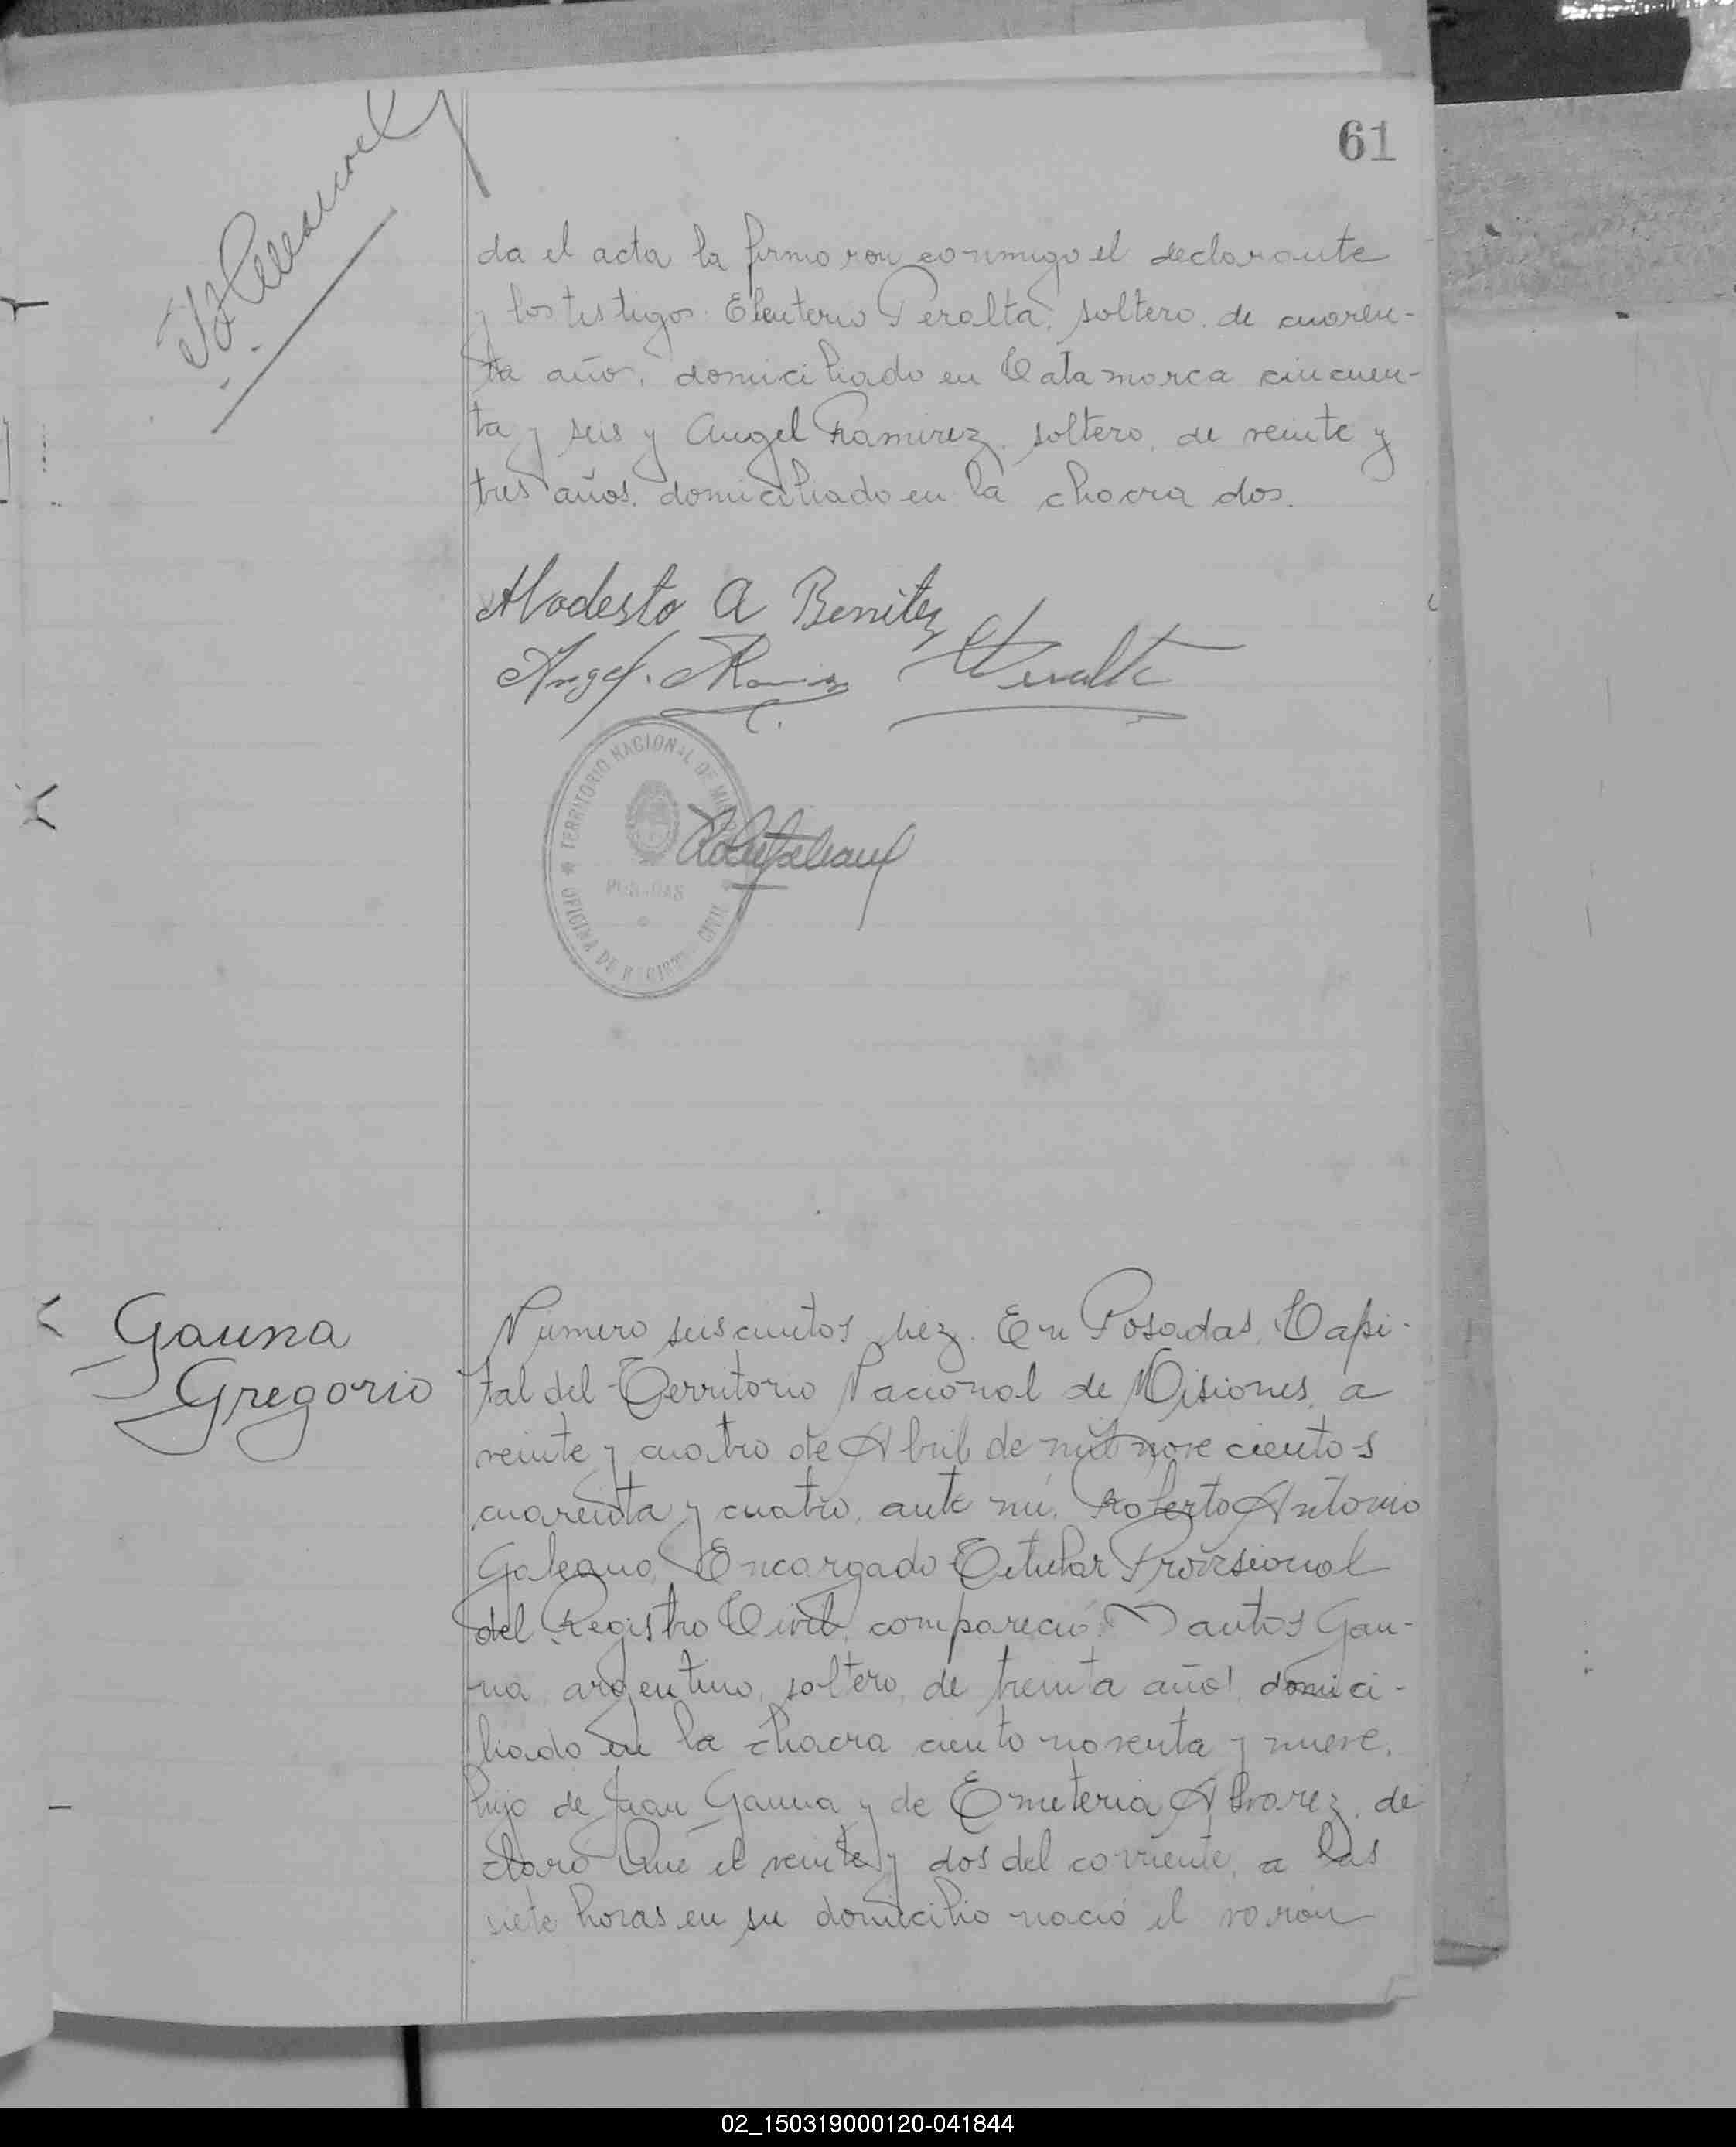 61
da el acta la firmaron conmigo el declarante
y los testigos: Eleuterio Peralta, soltero, de cuaren-
ta año, domiciliado en Catamarca cincuen-
ta y seis y Angel Ramirez, soltero, de veinte y
tres años, domiciliado en la chacra dos.
Modesto A Benitez
Angel. Ramirez Peralta
TERRITORIO NACIONAL DE MISIONES
POSADAS
OFICINA DE REGISTRO CIVIL
Gauna
Gregorio
Número seiscientos diez. En Posadas, Capi-
tal del Territorio Nacional de Misiones, a
veinte y cuatro de Abril de mil novecientos
cuarenta y cuatro, ante mí, Roberto Antonio
Galeano, Encargado Titular Provisional
del Registro Civil, compareció: Santos Gau-
na, argentino, soltero, de treinta años, domici-
liado en la chacra ciento noventa y nueve,
hijo de Juan Gauna y de Emeteria Alvarez, de
claró Que el veinte y dos del corriente, a las
siete horas en su domicilio nació el varón
02_150319000120-041844